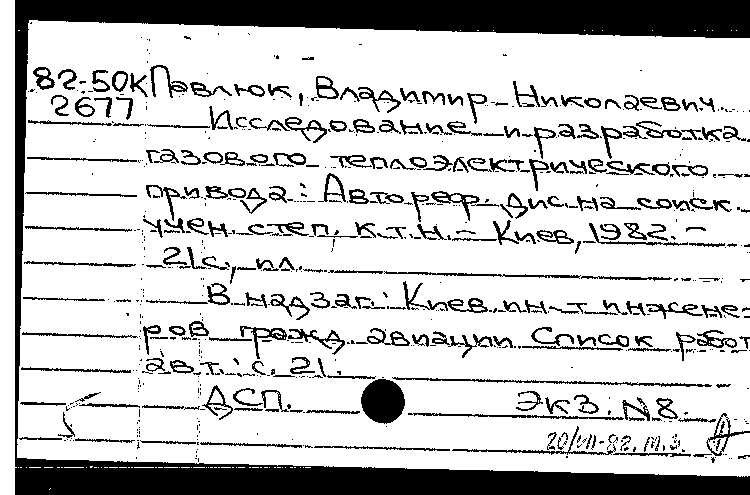 82-50К Павлюк, Владимир Николаевич.
2677
Исследование и разработка
газового теплоэлектрического
привода: Автореф. дис. на соиск.
учен. степ. к.т.н. – Киев, 1982. –
21с., ил.
В надзаг.: Киев. ин-т инжене-
ров гражд. авиации. Список работ
авт.: с. 21.
ДСП.
Экз. N8.
20/VII-82. т.з.